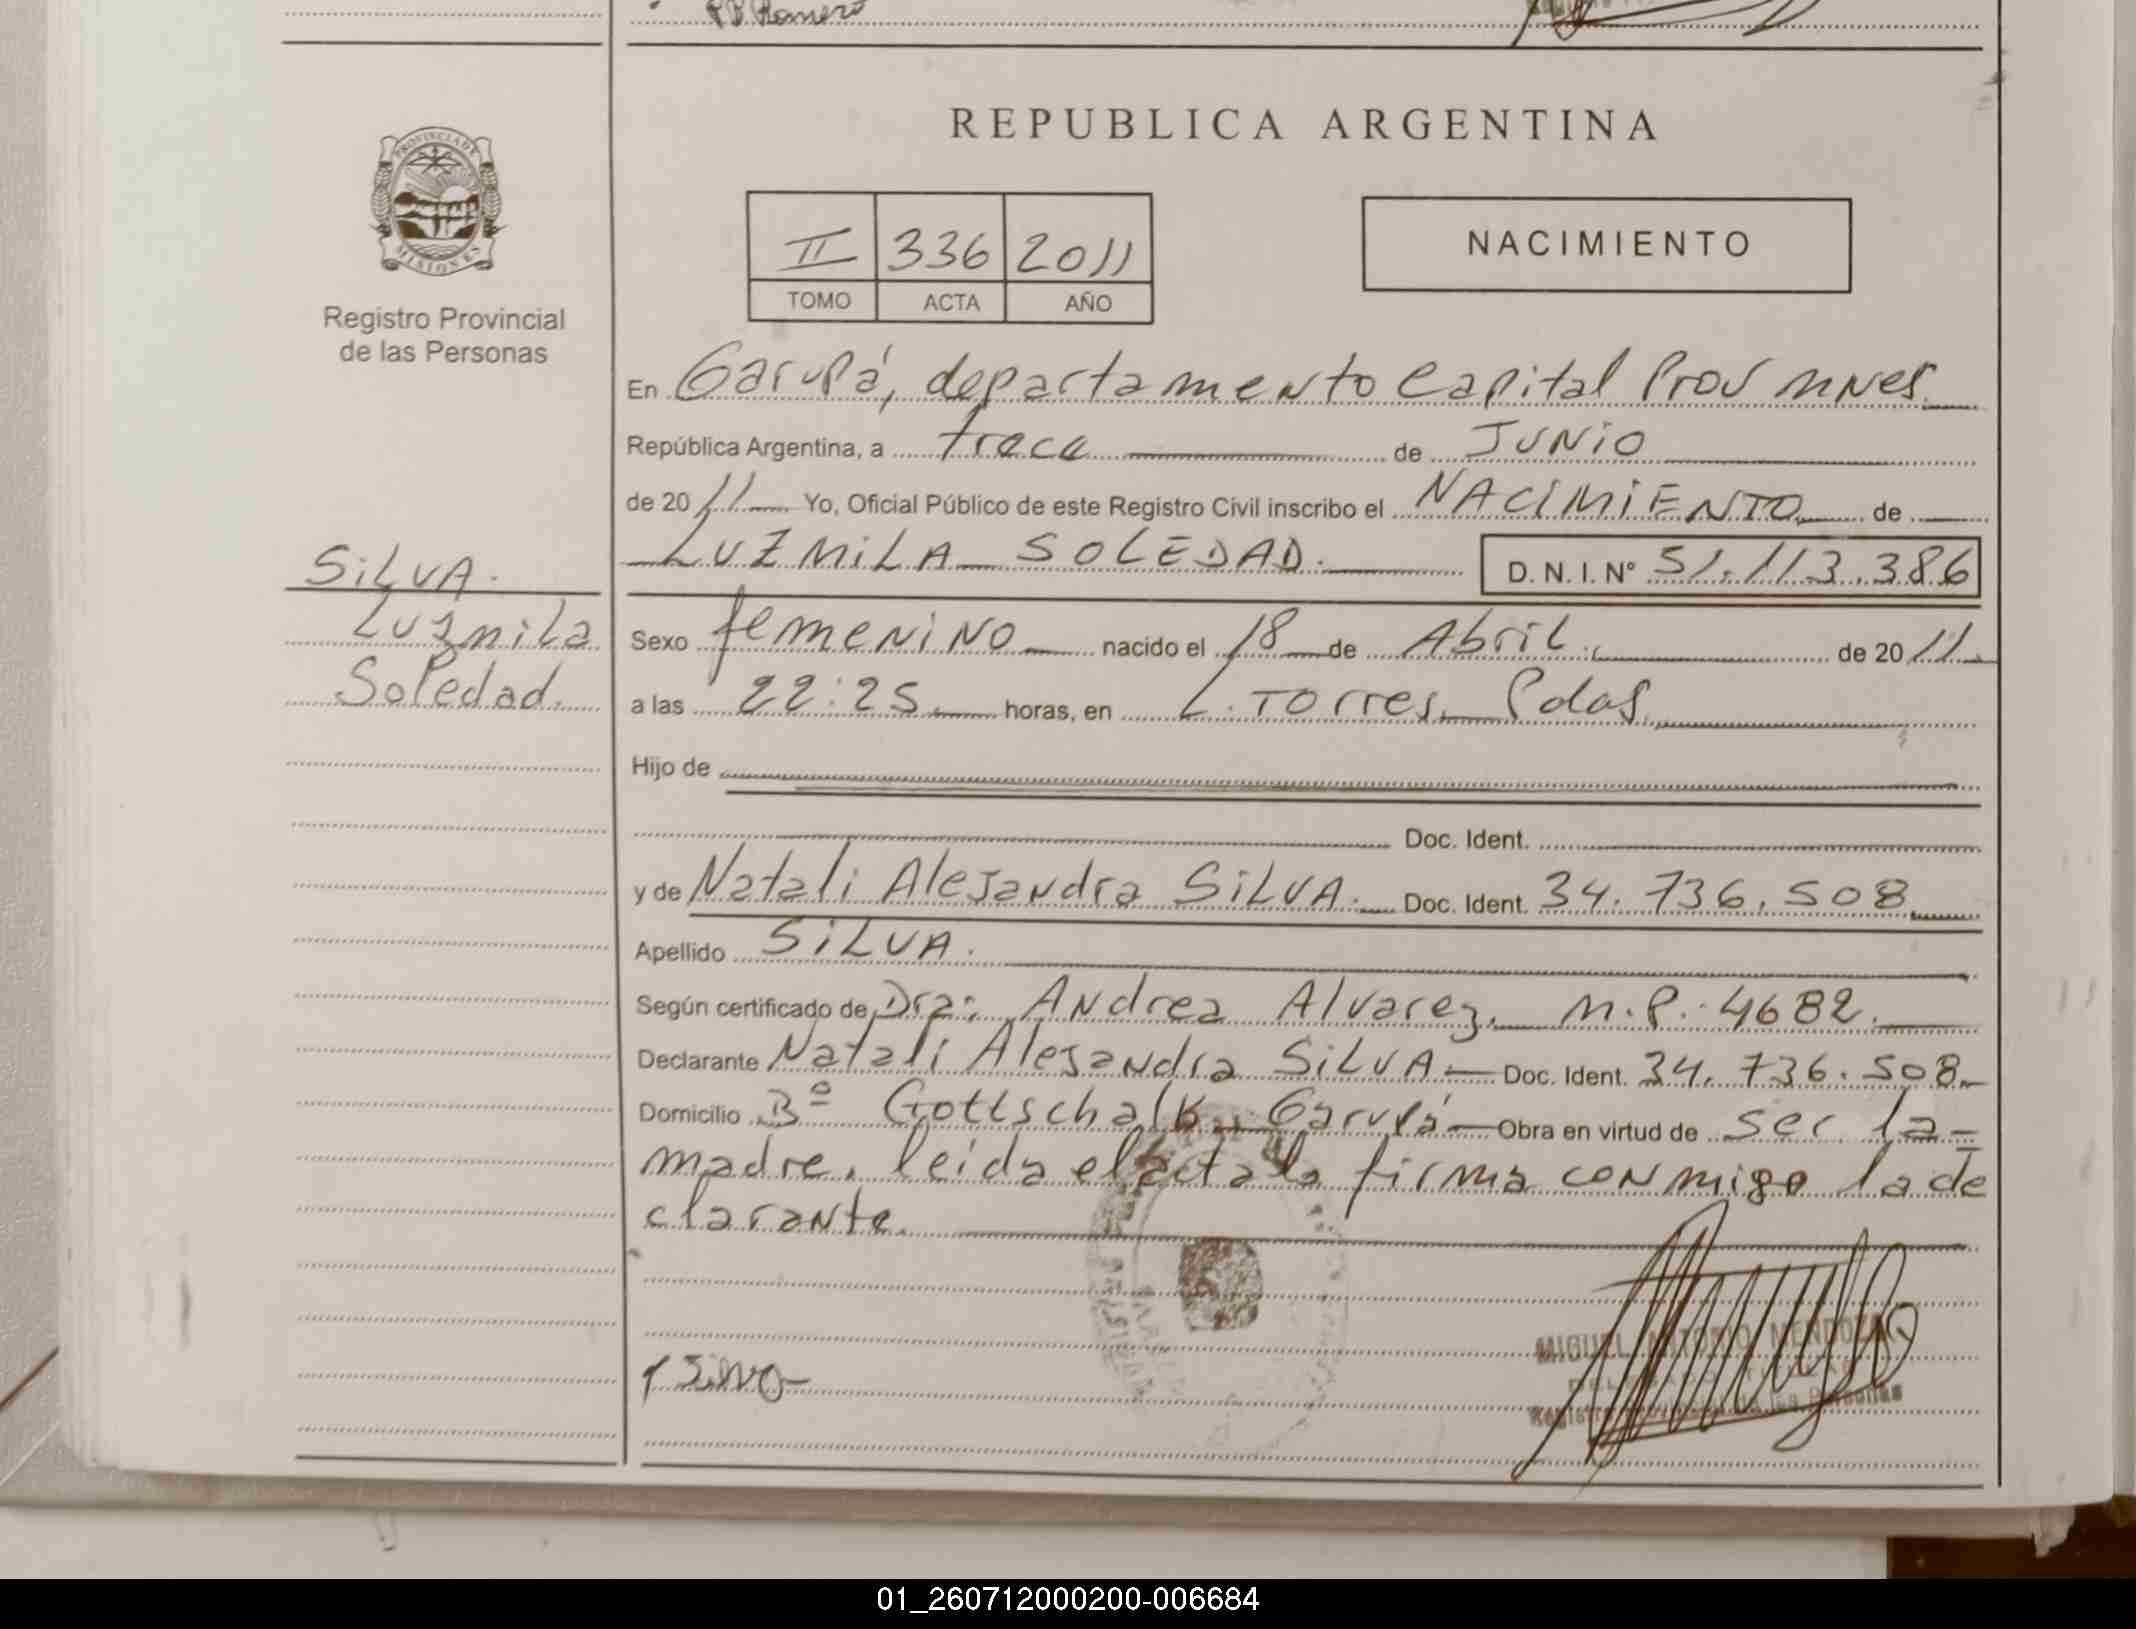 P.P. Romero
PROVINCIA DE
MISIONES
Registro Provincial
de las Personas
REPUBLICA ARGENTINA
II 336 2011
TOMO ACTA AÑO
NACIMIENTO
En Garupá, departamento Capital Prov Mnes
República Argentina, a trece de JUNIO
de 2011 Yo, Oficial Público de este Registro Civil inscribo el NACIMIENTO de
LUZMILA SOLEDAD. D.N.I. Nº 51.113.386
SILVA.
Luzmila
Soledad.
Sexo femenino nacido el 18 de Abril. de 2011
a las 22:25 horas, en L. Torres. Pdas.
Hijo de
Doc. Ident.
y de Natali Alejandra SILVA. Doc. Ident. 34.736.508
Apellido SILVA.
Según certificado de Dra: Andrea Alvarez. M.P. 4682.
Declarante Natali Alejandra SILVA Doc. Ident. 34.736.508
Domicilio Bº Gottschalk Garupá Obra en virtud de ser la
madre. leida el acta la firma conmigo la de
clarante.
Silva
MIGUEL ANTONIO MENDOZA
Registro Provincial de las Personas
01_260712000200-006684